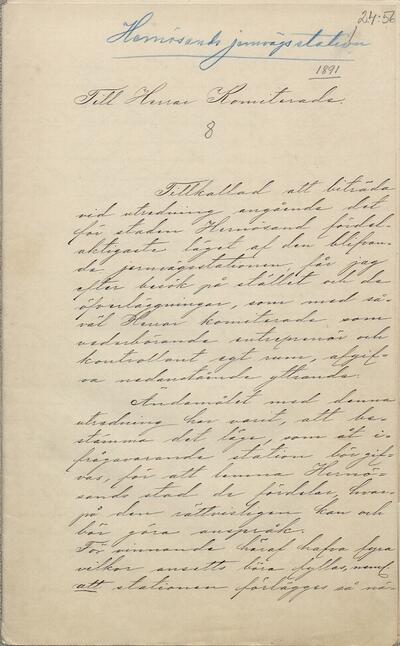 24:56
Hernösands jernvägsstation
1891
Till Herrar Komiterade.
8
Tillkallad att biträda
vid utredning angående det
för staden Hernösand fördel-
aktigaste läget af den blifvan-
de jernvägsstationen, får jag
efter besök på stället och de
öfverläggningar, som med så-
väl Herrar komiterade som
vederbörande entreprenör och
kontrollant egt rum, afgif-
va nedanstående yttrande.
Ändamålet med denna
utredning har varit, att be-
stämma det läge, som åt i-
frågavarande station bör gif-
vas, för att lemna Hernö-
sands stad de fördelar, hvar-
på den rättvisligen kan och
bör göra anspråk.
För vinnande häraf hafva fyra
vilkor ansetts böra fyllas, neml.
att stationen förlägges så nä-